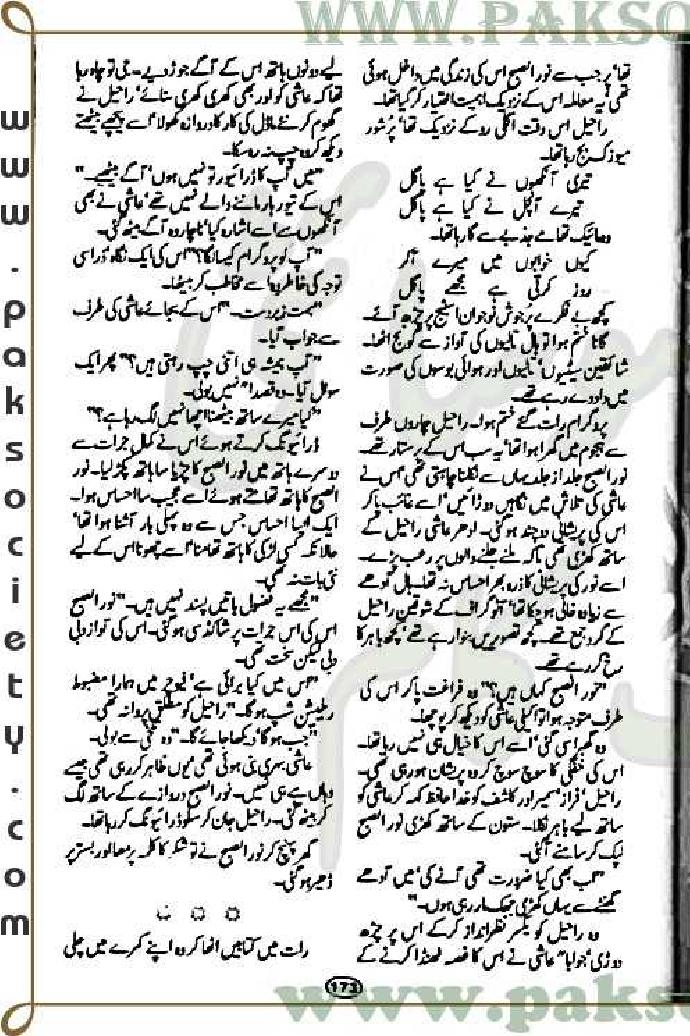 WWW.PAKSO
تھا' پر جب سے نور الصبح اس کی زندگی میں داخل ہوئی
تھی' یہ معاملہ اس کے نزدیک اہمیت اختیار کر گیا تھا۔
راحیل اس وقت اگلی رو کے نزدیک تھا' پُر شور
میوزک بج رہا تھا۔
تیری آنکھوں نے کیا ہے پاگل
تیرے آنچل نے کیا ہے پاگل
وہ مائیک تھامے جذبے سے گا رہا تھا۔
کیوں خوابوں میں میرے آکر
روز کرتی ہے مجھے پاگل
کچھ بے فکرے پُرجوش نوجوان اسٹیج پر چڑھ آئے۔
گانا ختم ہوا تو ہال تالیوں کی آواز سے گونج اٹھا۔
شائقین سیٹیوں' تالیوں اور ہوائی بوسوں کی صورت
میں داد دے رہے تھے۔
پروگرام رات گئے ختم ہوا۔ راحیل چاروں طرف
سے ہجوم میں گھرا ہوا تھا' یہ سب اس کے پرستار تھے۔
نور الصبح جلد از جلد یہاں سے نکلنا چاہتی تھی' اس نے
عاشی کی تلاش میں نگاہیں دوڑائیں' اسے غائب پا کر
اس کی پریشانی دوچند ہو گئی۔ ادھر عاشی راحیل کے
ساتھ کھڑی تھی تاکہ ملنے جلنے والوں پر رعب پڑے۔
اسے نور کی پریشانی کا ذرہ بھر احساس نہ تھا۔ ہال آدھے
سے زیادہ خالی ہو چکا تھا' آٹوگراف کے شوقین راحیل
کے گرد جمع تھے۔ کچھ تصویریں بنوا رہے تھے' کچھ باہر کا
رخ کر رہے تھے۔
"نور الصبح کہاں ہیں؟" وہ فراغت پا کر اس کی
طرف متوجہ ہوا تو اکیلی عاشی کو دیکھ کر پوچھا۔
وہ گھبرا سی گئی' اسے اس کا خیال ہی نہیں رہا تھا۔
اس کی خفگی کا سوچ سوچ کر وہ پریشان ہو رہی تھی۔
راحیل' فراز' سمیر اور کاشف کو خدا حافظ کہہ کر عاشی کو
ساتھ لیے باہر نکلا۔ ستون کے ساتھ کھڑی نور الصبح
لپک کر سامنے آ گئی۔
"اب بھی کیا ضرورت تھی آنے کی' میں آدھے
گھنٹے سے یہاں کھڑی جھک مار رہی ہوں۔"
وہ راحیل کو یکسر نظر انداز کر کے اس پر چڑھ
دوڑی' جواباً" عاشی نے اس کا غصہ ٹھنڈا کرنے کے
لیے دونوں ہاتھ اس کے آگے جوڑ دیے۔ جی تو چاہ رہا
تھا کہ عاشی کو اور بھی کھری کھری سنائے' راحیل نے
گھوم کر نئے ماڈل کی کار کا دروازہ کھولا' اسے پیچھے بیٹھتے
دیکھ کر وہ چپ نہ رہ سکا۔
"میں آپ کا ڈرائیور تو نہیں ہوں' آگے بیٹھیے۔"
اس کے تیور ہار ماننے والے نہیں تھے' عاشی نے بھی
آنکھوں سے اسے اشارہ کیا' ناچار وہ آگے بیٹھ گئی۔
"آپ کو پروگرام کیسا لگا؟" اس کی ایک نگاہ' ذرا سی
توجہ کی خاطر راہ اسے مخاطب کر بیٹھا۔
"بہت زبردست۔" اس کے بجائے عاشی کی طرف
سے جواب آیا۔
"آپ ہمیشہ ہی اتنی چپ رہتی ہیں؟" پھر ایک
سوال کیا۔ وہ قصداً" نہیں بولی۔
"کیا میرے ساتھ بیٹھنا اچھا نہیں لگ رہا ہے؟"
ڈرائیونگ کرتے ہوئے اس نے کمال جرات سے
دوسرے ہاتھ میں نور الصبح کا چڑیا سا ہاتھ پکڑ لیا۔ نور
الصبح کا ہاتھ تھامتے ہوئے اسے عجیب سا احساس ہوا۔
ایک ایسا احساس جس سے وہ پہلی بار آشنا ہوا تھا'
حالانکہ کسی لڑکی کا ہاتھ تھامنا' اسے چھونا اس کے لیے
نئی بات نہ تھی۔
"مجھے یہ فضول باتیں پسند نہیں ہیں۔" نور الصبح
اس کی اس جرات پر شاکڈ سی ہو گئی۔ اس کی آواز دبی
دبی لیکن سخت تھی۔
"اس میں کیا برائی ہے' فیوچر میں ہمارا مضبوط
ریلیشن شپ ہو گا۔" راحیل کو مطلق پروا نہ تھی۔
"جب ہو گا' دیکھا جائے گا۔" وہ تلخی سے بولی۔
عاشی بہری بنی ہوئی تھی' یوں ظاہر کر رہی تھی جیسے
وہاں ہے ہی نہیں۔ نور الصبح دروازے کے ساتھ لگ
کر بیٹھ گئی۔ راحیل جان کر سلو ڈرائیونگ کر رہا تھا۔
گھر پہنچ کر نور الصبح نے تو شکر کا کلمہ پڑھا اور بستر پر
ڈھیر ہو گئی۔
رات میں کتابیں اٹھا کر وہ اپنے کمرے میں چلی
173
www.paksociety.com
www.pakso